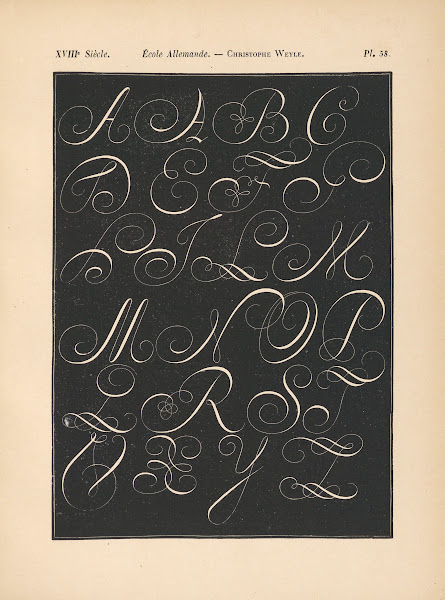 XVIIIᵉ Siècle. École Allemande. — CHRISTOPHE WEYLE. Pl. 38.
A A B C
D E F G
H I L M
M N O P
Q R S T
V X Y Z